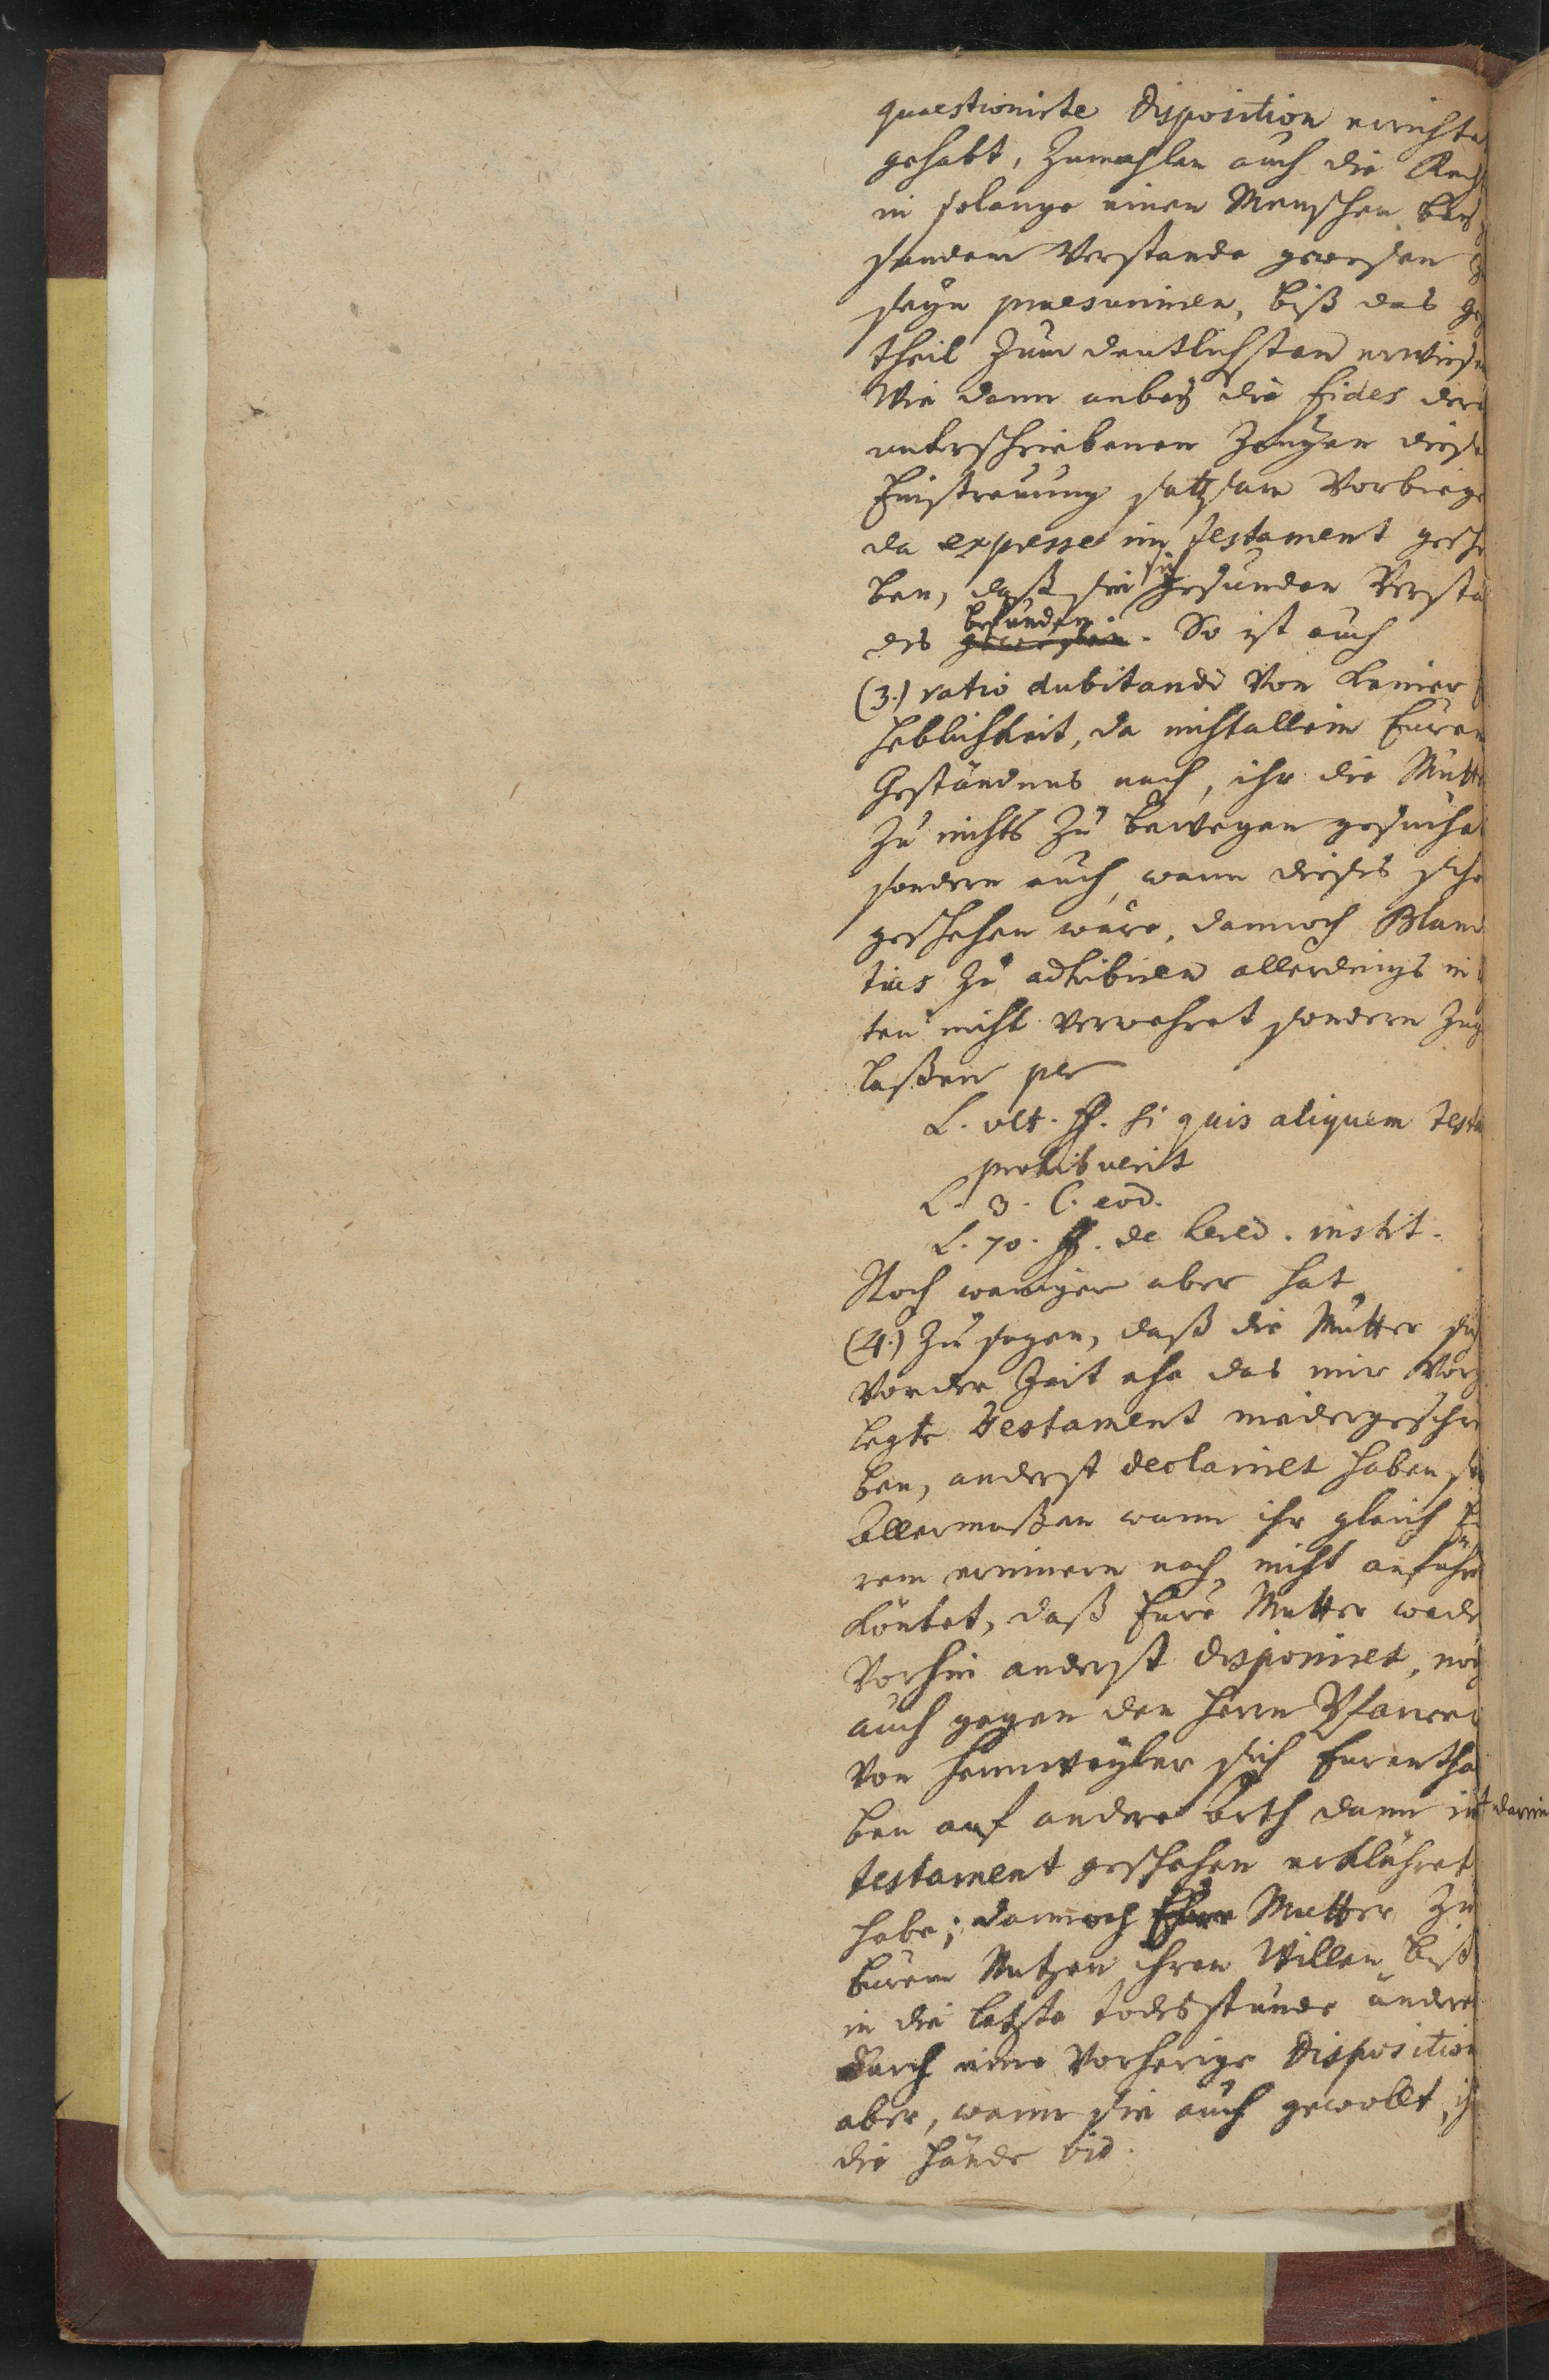 quaestionirte Disposition errichte
gehabt, Zumahlen auch die Rech
in solange einen Menschen bey
sundem Verstande gewesen
seyn praesumiren, biß das geg
theil Zum deutlichsten erwiesen
Wie dann anbey die fides dere
unterschriebenen Zeugen diese
Einstreuung sattsam Vorbiege
da expresse im testament gesch
ben, daß sie sich gesunden Versta
des gewesen befunden. So ist auch
(3.) ratio dubitandi Von keiner
heblichkeit, da nicht allein Euren
Geständnus nach, ihr die Mutt
Zu nichts Zu bewegen gesuchet
sondern auch, wann dieses scho
geschehen wäre, dannoch Bland
tias Zu adhibiren allerdings in
ten nicht verwehret sondern Zug
laßen per
L. ult. ff. si quis aliquem testa
prohibuerit
L. 3. C. eod.
L. 70. ff. de hered. instit.
Noch weniger aber hat
(4.) Zu sagen, daß die Mutter sich
Vor der Zeit ehe das mir Vorg
legte testament niedergeschrie
ben, anderst declariret haben so
Allermaßen wann ihr gleich Eu
rem erinnern nach nicht anführe
köntet, daß Eure Mutter wede
Vorhin anderst disponiret, noch
auch gegen den Herrn Pfarrer
Von Hennweyler sich Eurentha
ben auf andere arth dann im
+ darin
testament geschehen erklähret
habe; dannoch Eure Mutter Zu
Eurem Nutzen ihren Willen biß
in die letzte todesstunde ändere
durch eine Vorherige Disposition
aber, wann sie auch gewollt, ih
die Hände bid.